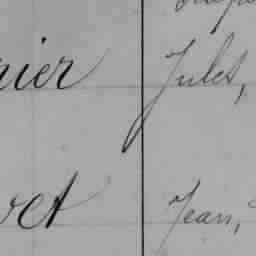 nier Jules,
vet Jean,